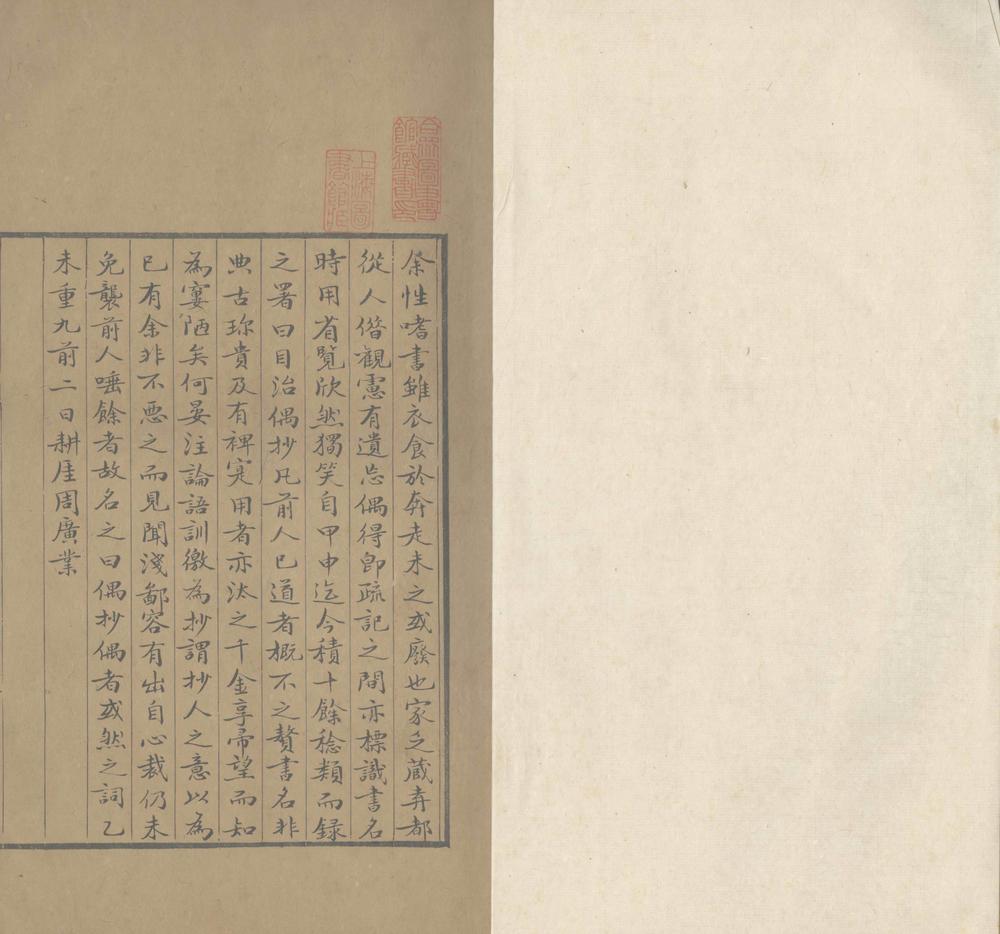 合眾圖書
館藏書印
上海圖
書館臧
余性嗜書雖衣食於奔走未之或廢也家乏蔵弆都
從人偕觀慮有遺忘偶得即疏記之間亦標識書名
時用省覽欣然獨笑自甲申迄今積十餘稔類而録
之署曰目治偶抄凡前人已道者概不之贅書名非
典古珎貴及有裨寔用者亦汰之千金享帚望而知
為寠陋矣何晏注論語訓徼為抄謂抄人之意以為
已有余非不惡之而見聞淺鄙容有出自心裁仍未
免襲前人唾餘者故名之曰偶抄偶者或然之詞乙
未重九前二日耕厓周廣業